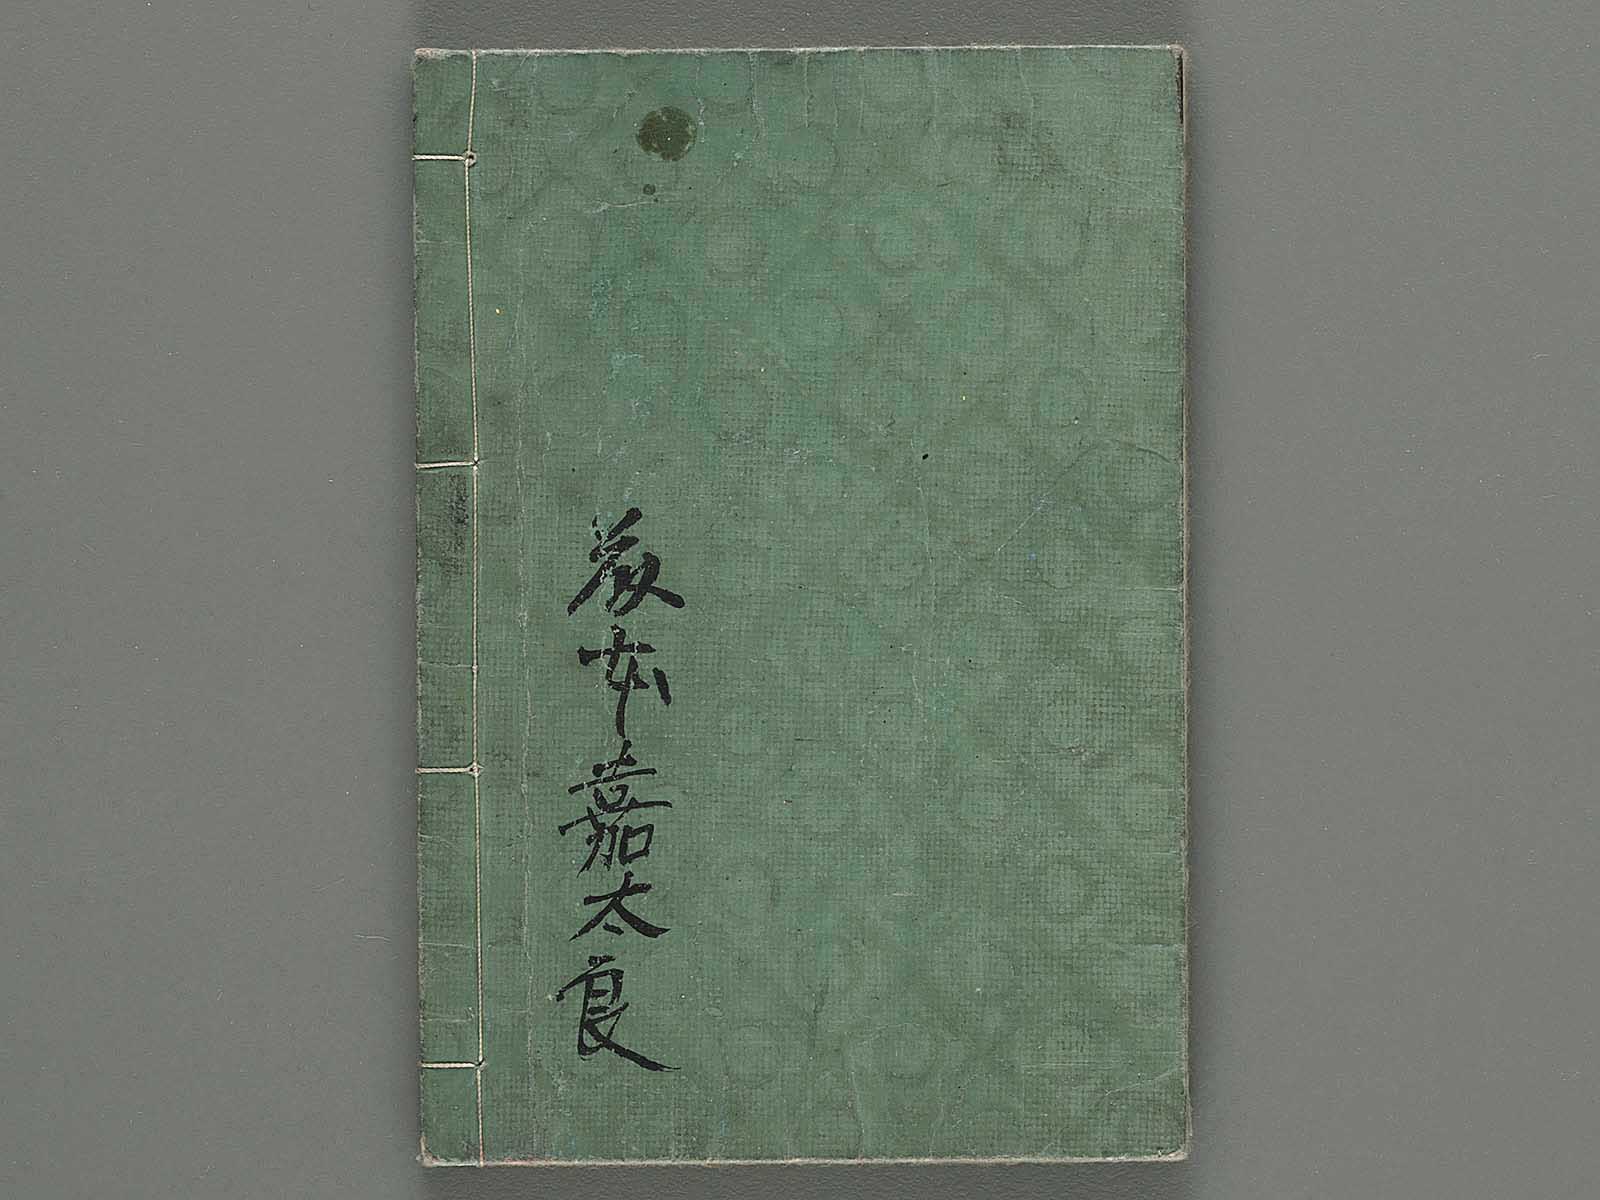 本嘉太良